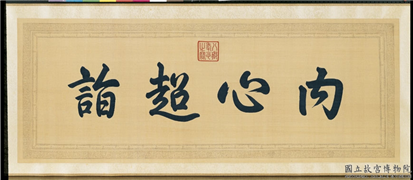 內心超詣
國立故宮博物院